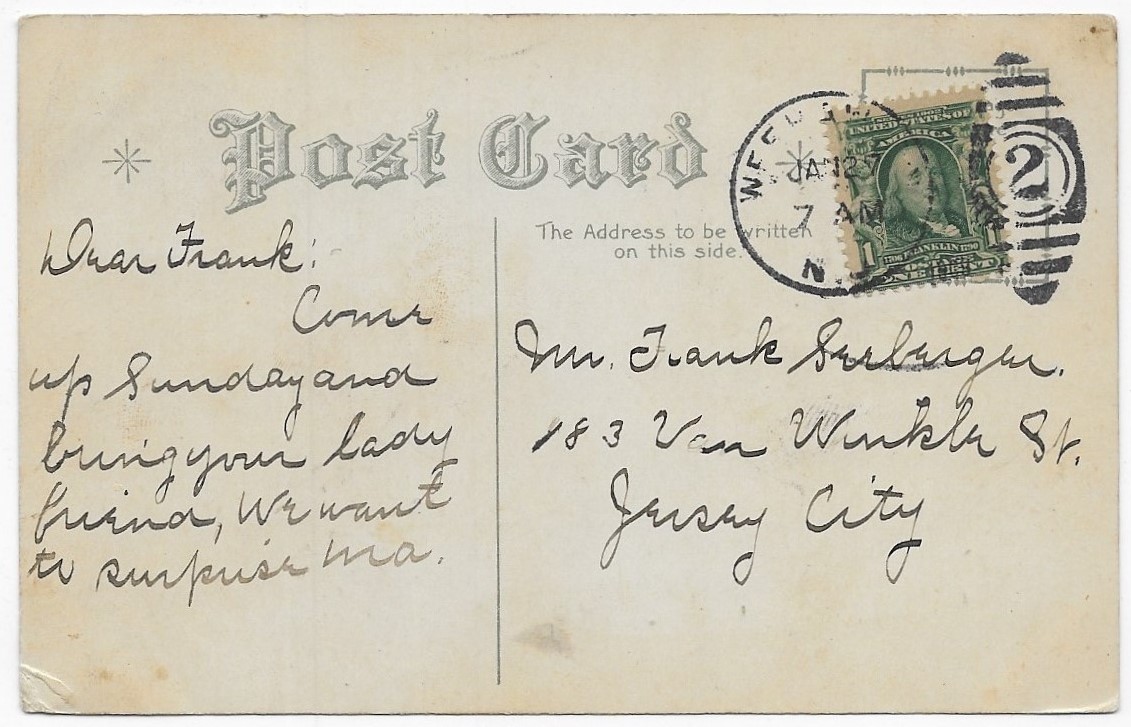 Post Card
The Address to be written
on this side.
JAN 27
7 AM
N.J.
2
UNITED STATES OF
AMERICA
1706 FRANKLIN 1790
1
ONE CENT
Dear Frank:
Come
up Sunday and
bring your lady
friend, We want
to surprise Ma.
Mr. Frank Seeberger.
183 Van Winkle St.
Jersey City